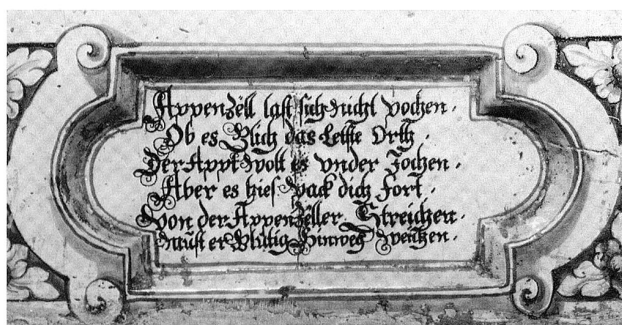 Appenzell last sich nicht bochen.
Ob es Glich das Letste Orth.
Der Appt wolt es vnder Jochen.
Aber es hies pack dich Fort.
Von der Appenzeller Streichen.
must er Blutig Hinweg weichen.